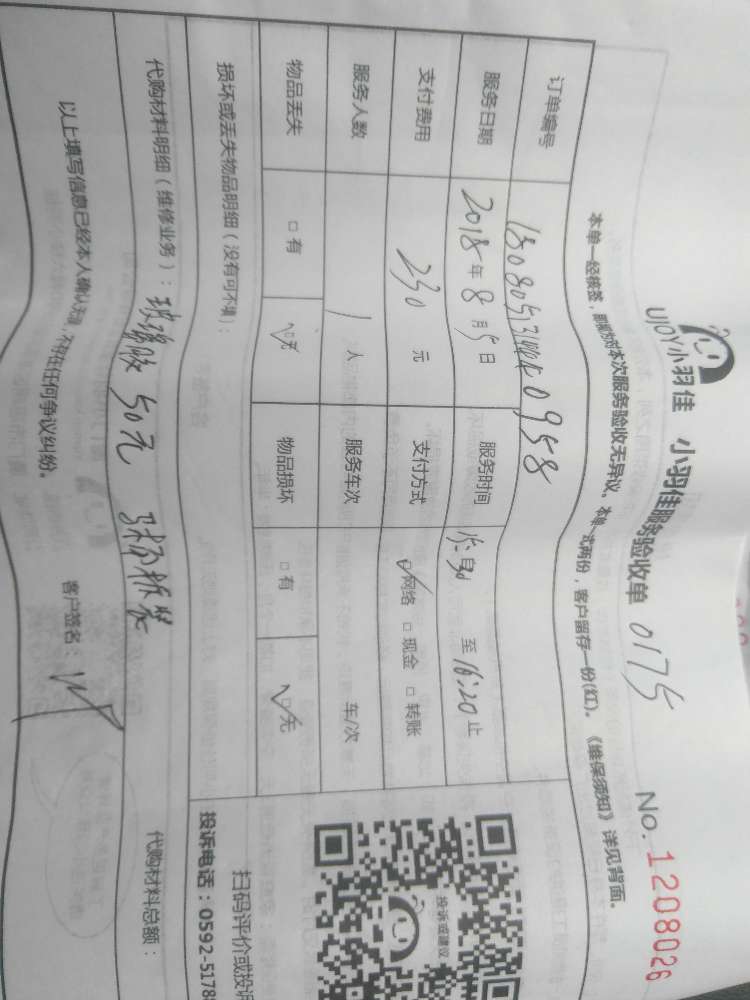 UJOY小羽佳 小羽佳服务验收单 0175 No. 1208026
本单一经核签，即视为对本次服务验收无异议。本单一式两份，客户留存一份(红)。《维保须知》详见背面。
订单编号 0958
服务日期 2018年8月5日 服务时间 15:30 至 16:20 止
支付费用 230 元 支付方式 ☑网络 □现金 □转账
服务人数 1 人 服务车次 车/次
物品丢失 □有 ☑无 物品损坏 □有 ☑无
损坏或丢失物品明细（没有可不填）：
代购材料明细（维修业务）：玻璃胶 50元
代购材料总额：
以上填写信息已经本人确认无误，不存在任何争议纠纷。 客户签名：
投诉或建议
扫码评价或投诉
投诉电话：0592-5178